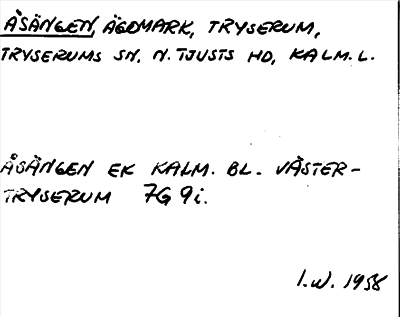 ÅSÄNGEN, ÄGOMARK, TRYSERUM,
TRYSERUMS SN. N. TJUSTS HD, KALM. L.
ÅSÄNGEN EK KALM. BL. VÄSTER-
TRYSERUM 7G 9i.
I.W. 1958